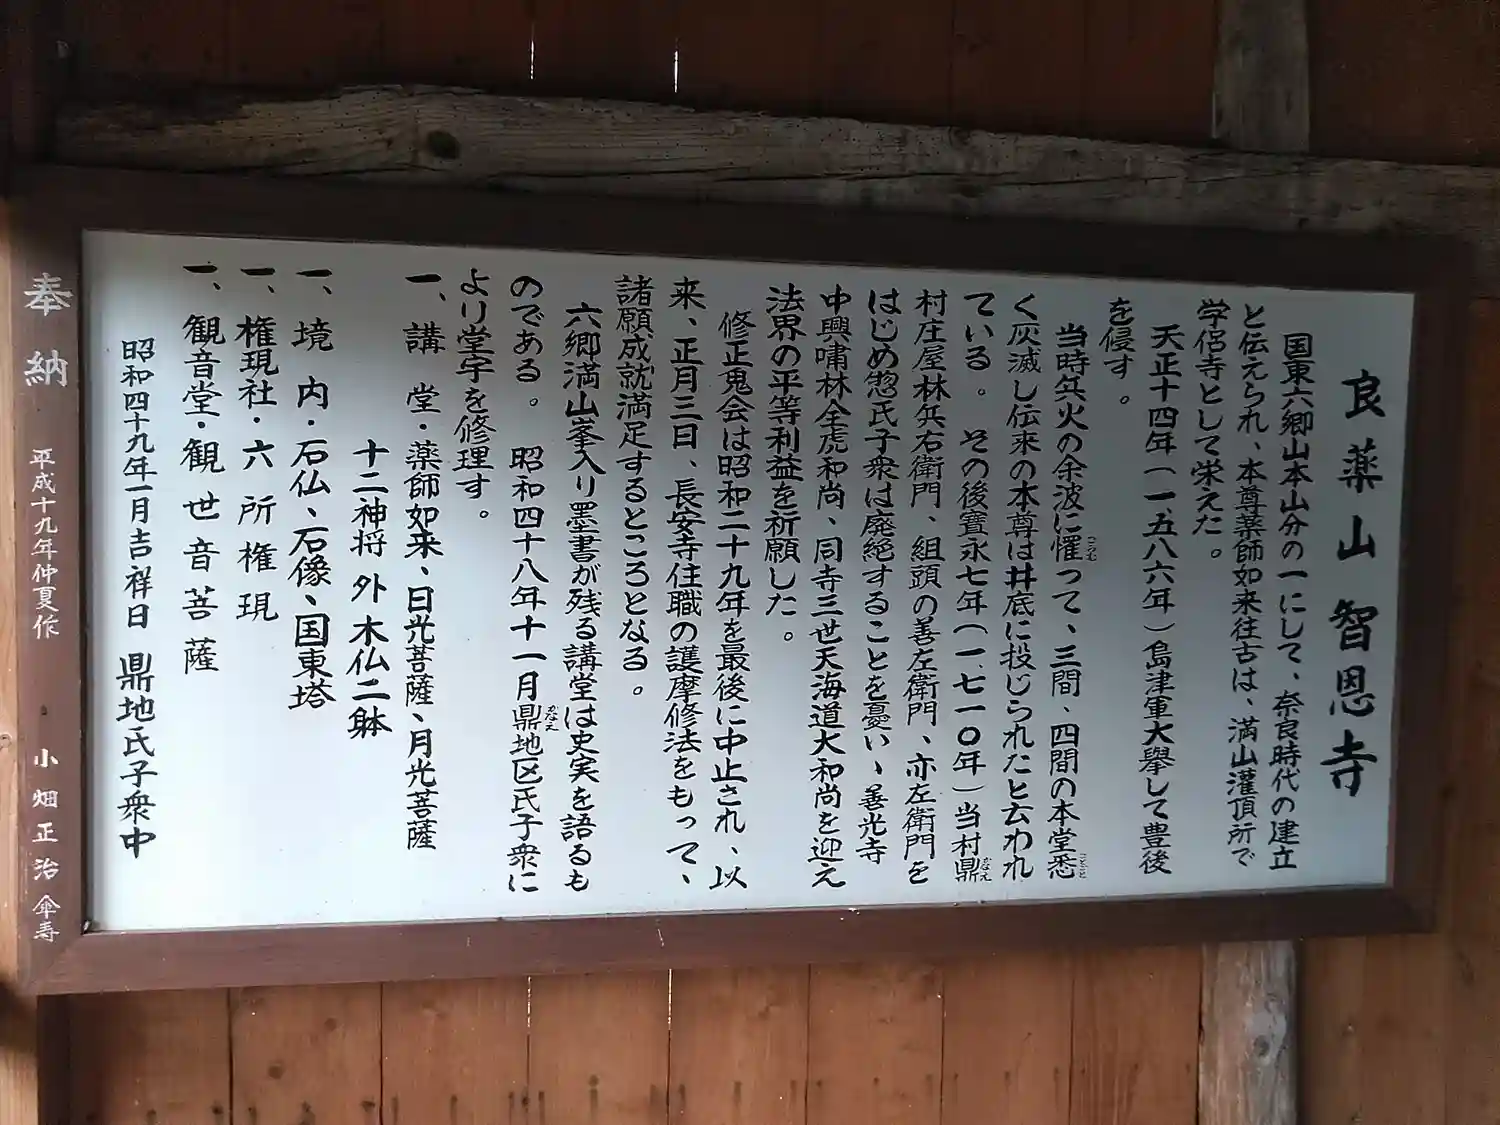 良薬山智恩寺
国東六郷山本山分の一にして、奈良時代の建立
と伝えられ、本尊薬師如来往古は、満山灌頂所で
学侶寺として栄えた。
天正十四年(一、五八六年)島津軍大挙して豊後
を侵す。
当時兵火の余波に罹って、三間、四間の本堂悉
く灰滅し伝来の本尊は井底に投じられたと云われ
ている。その後寶永七年(一、七一〇年)当村鼎
村庄屋林兵右衛門、組頭の善左衛門、亦左衛門を
はじめ惣氏子衆は廃絶することを憂い、善光寺
中興嘯林全虎和尚、同寺三世天海道大和尚を迎え
法界の平等利益を祈願した。
修正鬼会は昭和二十九年を最後に中止され、以
来、正月三日、長安寺住職の護摩修法をもって、
諸願成就満足するところとなる。
六郷満山峯入り墨書が残る講堂は史実を語るも
のである。昭和四十八年十一月鼎地区氏子衆に
より堂宇を修理す。
一、講堂・薬師如来、日光菩薩、月光菩薩
十二神将 外木仏二躰
一、境内・石仏、石像、国東塔
一、権現社・六所権現
一、観音堂・観世音菩薩
昭和四十九年一月吉祥日 鼎地氏子衆中
奉納 平成十九年仲夏作 小畑正治 傘寿